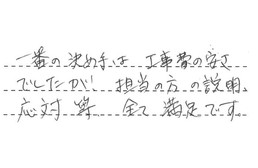 一番の決め手は 工事費の安さ
でしたが! 担当の方の説明、
応対 等 全て 満足です。